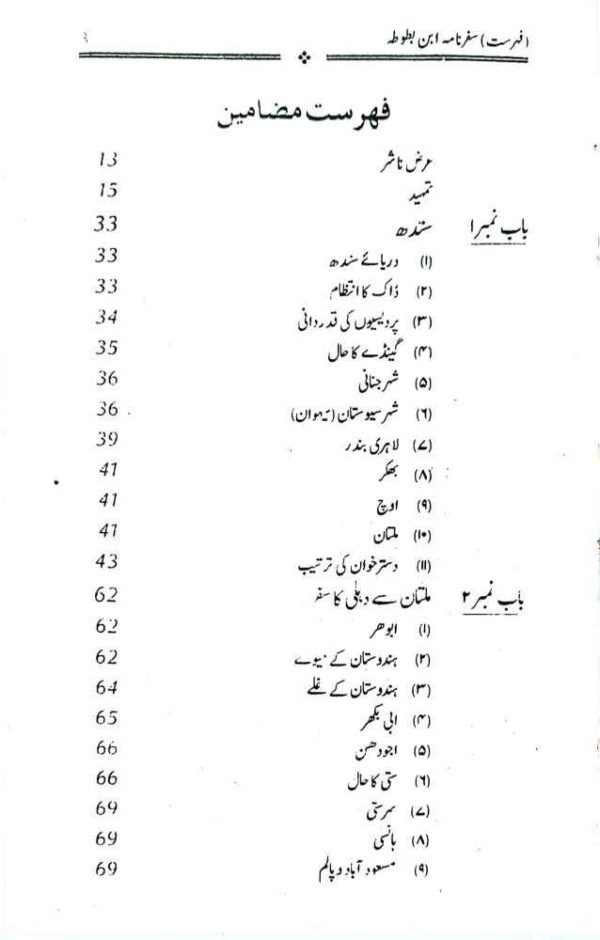 (فہرست) سفرنامہ ابن بطوطہ
فہرست مضامین
عرض ناشر 13
تمہید 15
باب نمبر ۱ سندھ 33
(۱) دریائے سندھ 33
(۲) ڈاک کا انتظام 33
(۳) پردیسیوں کی قدردانی 34
(۴) گینڈے کا حال 35
(۵) شہر جنانی 36
(۶) شہر سیوستان (یہوان) 36
(۷) لاہری بندر 39
(۸) بھکر 41
(۹) اوچ 41
(۱۰) ملتان 41
(۱۱) دسترخوان کی ترتیب 43
باب نمبر ۲ ملتان سے دہلی کا سفر 62
(۱) ابوھر 62
(۲) ہندوستان کے میوے 62
(۳) ہندوستان کے غلے 64
(۴) ابی بکھر 65
(۵) اجودھن 66
(۶) ستی کا حال 66
(۷) سرستی 69
(۸) ہانسی 69
(۹) مسعود آباد و پالم 69